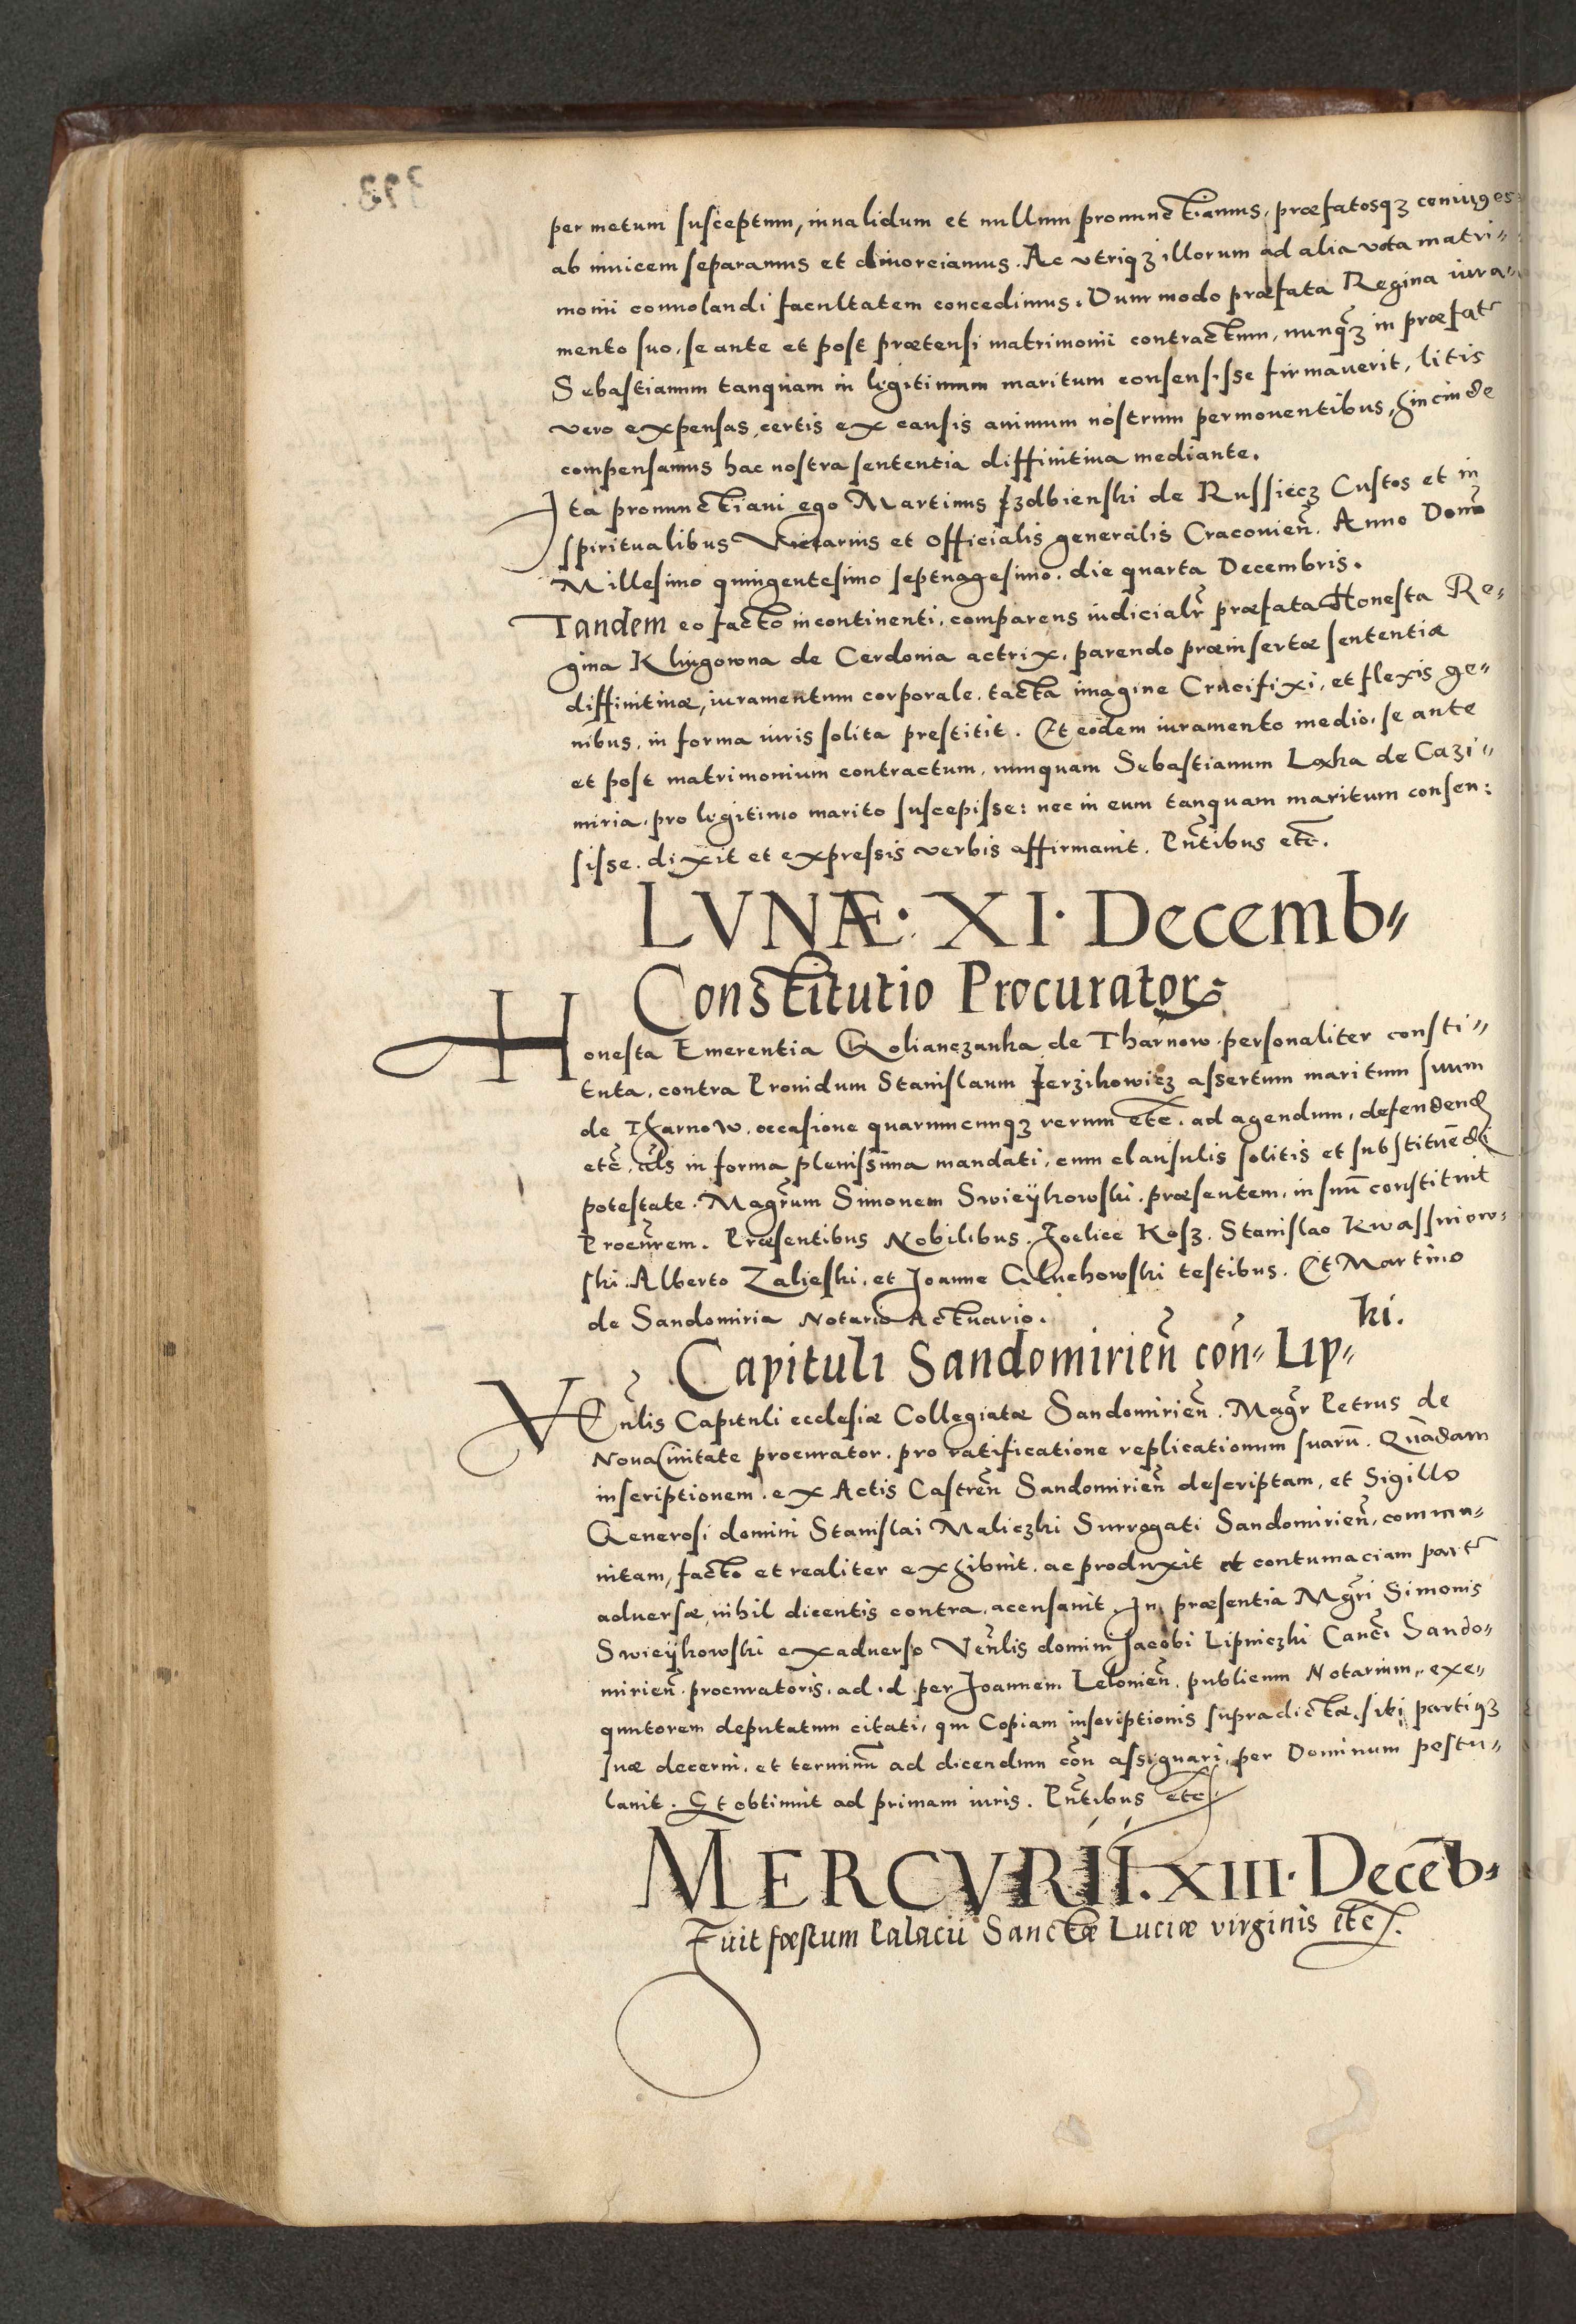 per metum susceptum, inualidum et nullum pronunctiamus, præfatosqʒ coniuges
ab inuicem separamus et diuorciamus. Ac vtriqʒ illorum ad alia vota matri⸗
monii conuolandi facultatem concedimus. Dummodo præfata Regina iura⸗
mento suo, se ante et post prætensi matrimonii contractum, nunqʒ in præfat
Sebastianum tanquam in legitimum maritum consensisse firmauerit, litis
vero expensas, certis ex causis animum nostrum permouentibus, hincinde
compensamus hac nostra sententia diffinitiua mediante.
Ita pronunctiaui ego Martinus Izdbienski de Russiecz Custos et in
spiritualibus Vicarius et Officialis generalis Cracovien. Anno Domo
Millesimo quingentesimo septuagesimo. die quarta Decembris.
Tandem eo facto incontinenti, comparens iudicialr præfata Honesta Re⸗
gina Klingowna de Cerdonia actrix, parendo præinsertæ sententiæ
diffinitiuæ, iuramentum corporale, tacta imagine Crucifixi, et flexis ge⸗
nibus, in forma iuris solita prestitit. Et eodem iuramento medio, se ante
et post matrimonium contractum, nunquam Sebastianum Loxka de Cazi⸗
miria, pro legitimo marito suscepisse: nec in eum tanquam maritum consen:
sisse. dixit et expressis verbis affirmauit. Pntibus etc.
LVNÆ. XI. Decemb⸗
Constitutio Procurator
Honesta Emerentia Golianczanka de Tharnow personaliter consti⸗
tuta, contra Prouidum Stanislaum Jerzikowicz assertum maritum suum
de Tharnow, occasione quarumcunqʒ rerum etc. ad agendum, defendend
etc, als in forma plenissima mandati, cum clausulis solitis et substituedi
potestate. Magrum Simonem Swieykowski præsentem, in suu constituit
Procurem. Præsentibus Nobilibus. Joelice Kosz. Stanislao Kwassniow⸗
ski. Alberto Zalieski, et Joanne Gluchowski testibus. Et Martino
de Sandomiria Notario Actuario.
ki.
Capituli Sandomirien con⸗ Lip⸗
VEnlis Capituli ecclesiæ Collegiatæ Sandomirien. Magr Petrus de
Noua Ciuitate procurator, pro ratificatione replicationum suaru. Quadam
inscriptionem, ex Actis Castren Sandomirien descriptam, et Sigillo
Generosi domini Stanislai Maliczki Surrogati Sandomirien, commu⸗
nitam, facto et realiter exhibuit, ac produxit et contumaciam part
aduersæ, nihil dicentis contra, accusauit. In præsentia Mgri Simonis
Swieykowski exaduerso Venlis domini Jacobi Lipniczki Canci Sando⸗
mirien. procuratoris, ad.d per Joannem Lelonien. publicum Notarium, exe⸗
quutorem deputatum citati, qui Copiam inscriptionis supradictæ, sibi partiqʒ
suæ decerni, et terminu ad dicendum con assignari, per Dominum postu⸗
lauit. Et obtinuit ad primam iuris. Pntibus etc
MERCVRII. XIII. Deceb⸗
Fuit fœstum Palacii Sanctæ Luciæ virginis etc.